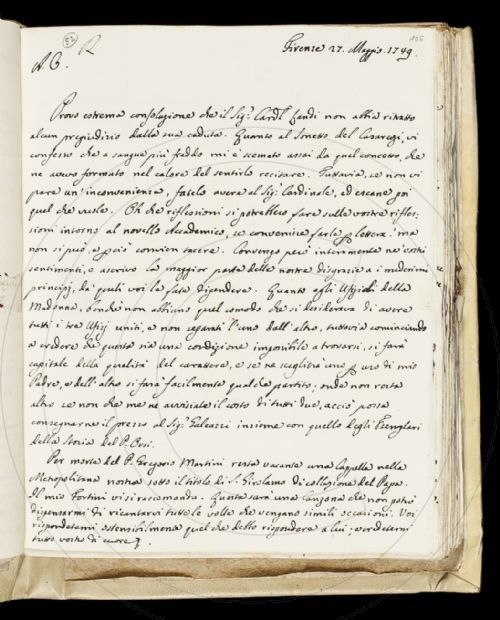 52 R 106
A. C. Firenze 27. Maggio. 1749.
Provo estrema consolazione che il Sig.r Card.l Landi non abbia risentito
alcun pregiudizio dalla sua caduta. Quanto al Sonetto del Casaregi, vi
confesso che a sangue più freddo mi è scemato assai da quel concetto, che
ne avevo formato nel calore del sentirlo recitare. Tuttavia, se non vi
pare un'inconvenienza, fatelo avere al Sig.r Cardinale, ed escane poi
quel che vuole. Oh che riflessioni si potrebbero fare sulle vostre rifles-
sioni intorno al novello Accademico, se convenisse farle p lettera: ma
non si può, e p ciò convien tacere. Convengo però interamente ne' vostri
sentimenti, e ascrivo la maggior parte delle nostre disgrazie a i medesimi
principj, da quali voi le fate dipendere. Quanto agli Ufizioli della
Madonna, sondo non abbiano quel comodo che si desiderava di avere
tutti i tre Ufizj uniti, e non separati l'uno dall'altro, tuttavia cominciando
a credere che questa sia una condizione impossibile a trovarsi, si farà
capitale della qualità del carattere, e se ne sceglierà uno p uso di mio
Padre, e dell'altro si farà facilmente qualche partito; onde non resta
altro se non che me ne avvisiate il costo di tutti due, acciò possa
consegnarne il prezzo al Sig.r Galeazzi insieme con quello degli Esemplari
della Storia del P. Orsi.
Per morte del P. Gregorio Martini resta vacante una Cappella nella
Metropolitana nostra sotto il titolo di S. Girolamo di collazione del Papa.
Il mio Fortini vi si raccomanda. Questa sarà una canzona che non potrò
dispensarmi di ricantarvi tutte le volte che vengano simili occasioni. Voi
rispondetemi ostensibilmente quel che debbo rispondere a lui; e credetemi
tutto vostro di cuore